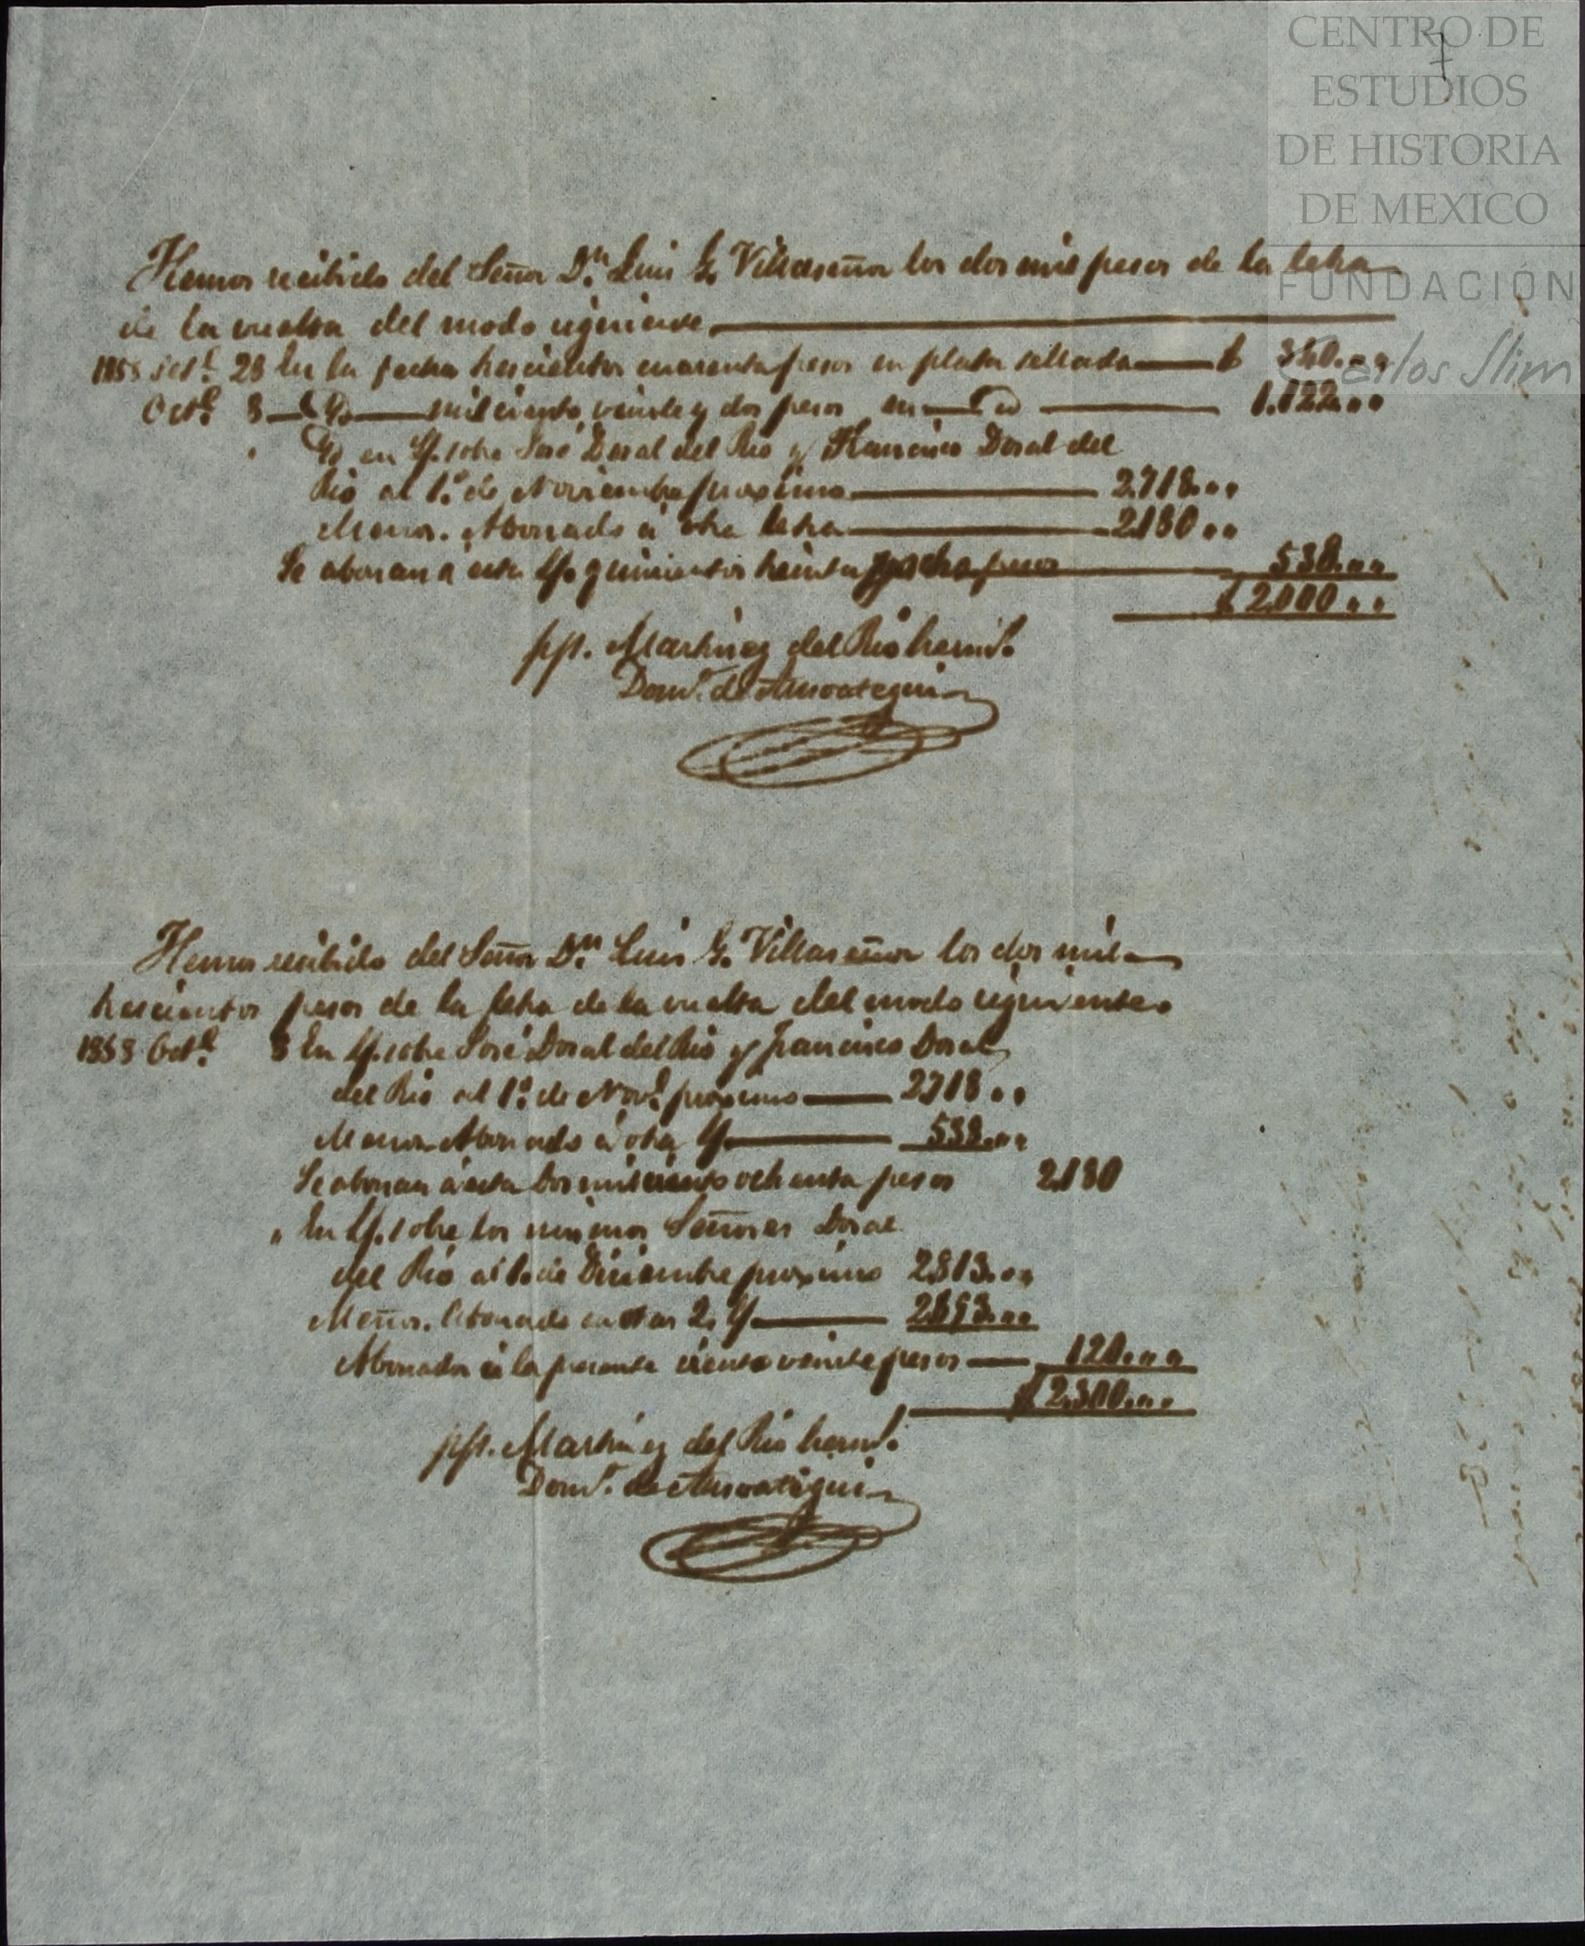 CENTRO DE
ESTUDIOS
DE HISTORIA
DE MEXICO
FUNDACIÓN
Carlos Slim
7
Hemos recibido del Señor Dn. Luis G. Villaseñor los dos mil pesos de la letra
de la vuelta del modo siguiente.
1858 Set.e 28 En la fecha trescientos cuarenta pesos en plata sellada $ 340..
Oct.e 8 mil ciento veinte y dos pesos en 1.122..
en sobre José Doral del Rio y Francisco Doral del
Rio al 1.o de Noviembre proximo 2.718..
Menos. Abonado á otra letra 2.180..
Se abonan á esta quinientos treinta y ocho pesos 538..
$ 2.000..
pp. Martinez del Rio herm.s
Dom.o de Ansoategui
Hemos recibido del Señor Dn. Luis G. Villaseñor los dos mil
trescientos pesos de la letra de la vuelta del modo siguiente.
1858 Oct.e 8 En sobre José Doral del Rio y Francisco Doral
del Rio al 1.o de Nov.e proximo 2718..
Menos Abonado á otra 538..
Se abonan á esta Dos mil ciento ochenta pesos 2.180
" En sobre los mismos Señores Doral
del Rio al 1.o de Diciembre proximo 2813..
Menos. Abonado en otras 2. 2693..
Abonados á la presente ciento veinte pesos 120..
$ 2.300..
pp. Martinez del Rio herm.s
Dom.o de Ansoategui